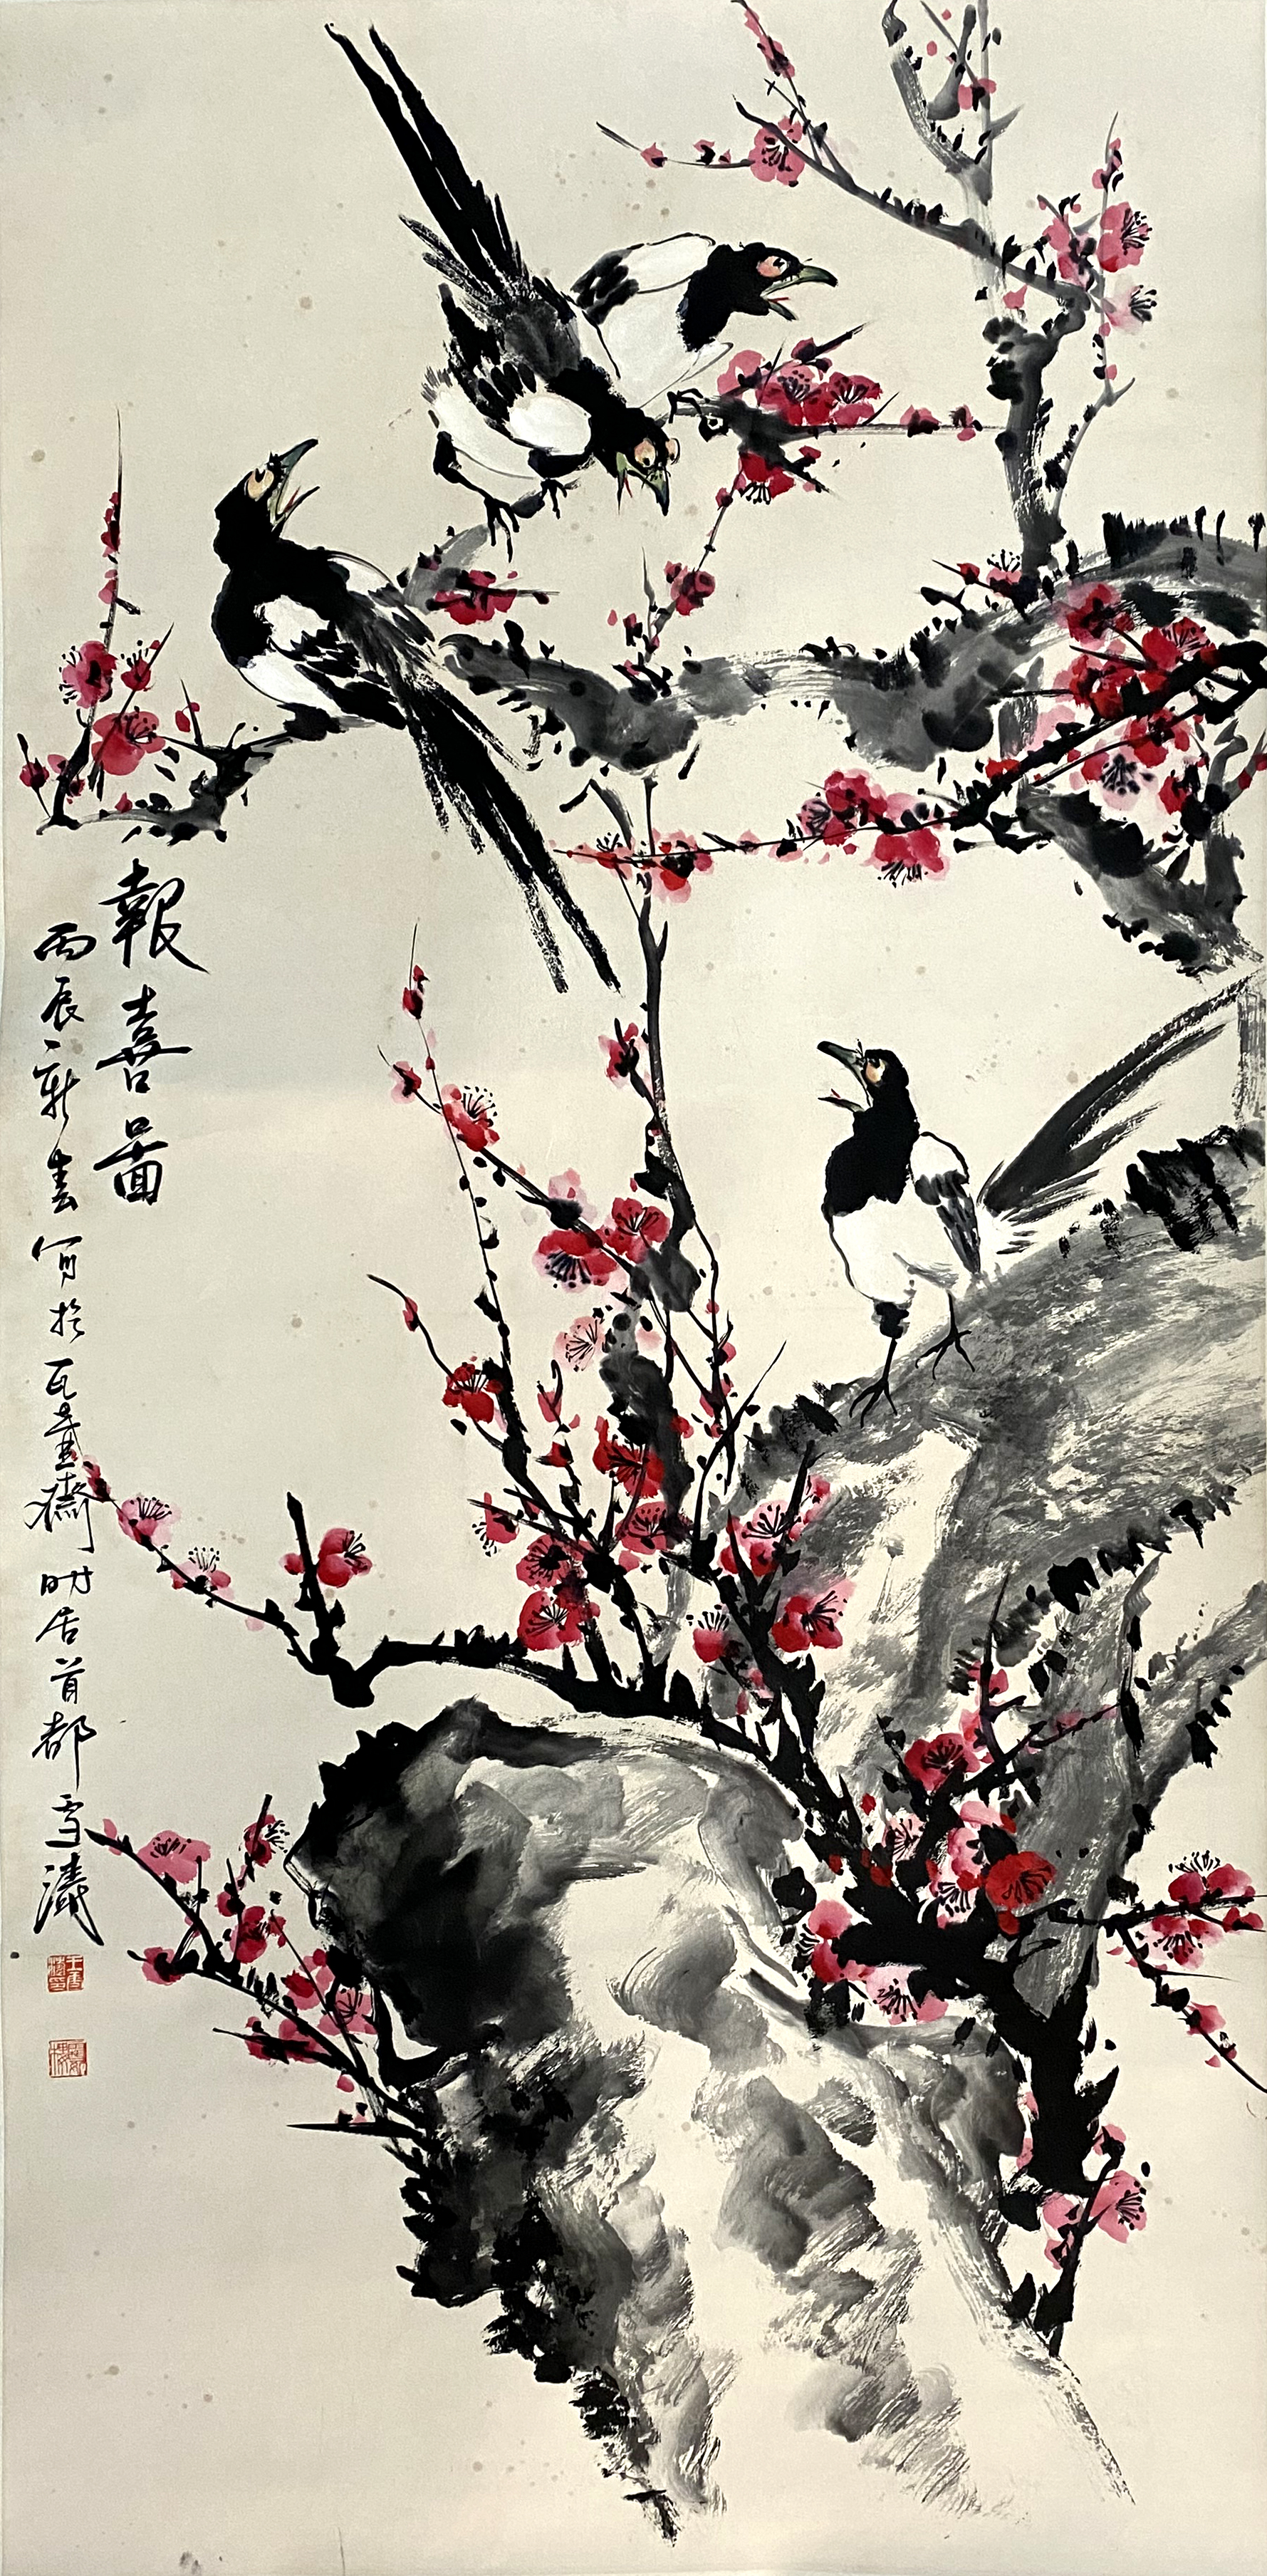 報喜圖
丙辰新春寫於瓦壺齋時居首都雪濤
王雪濤印